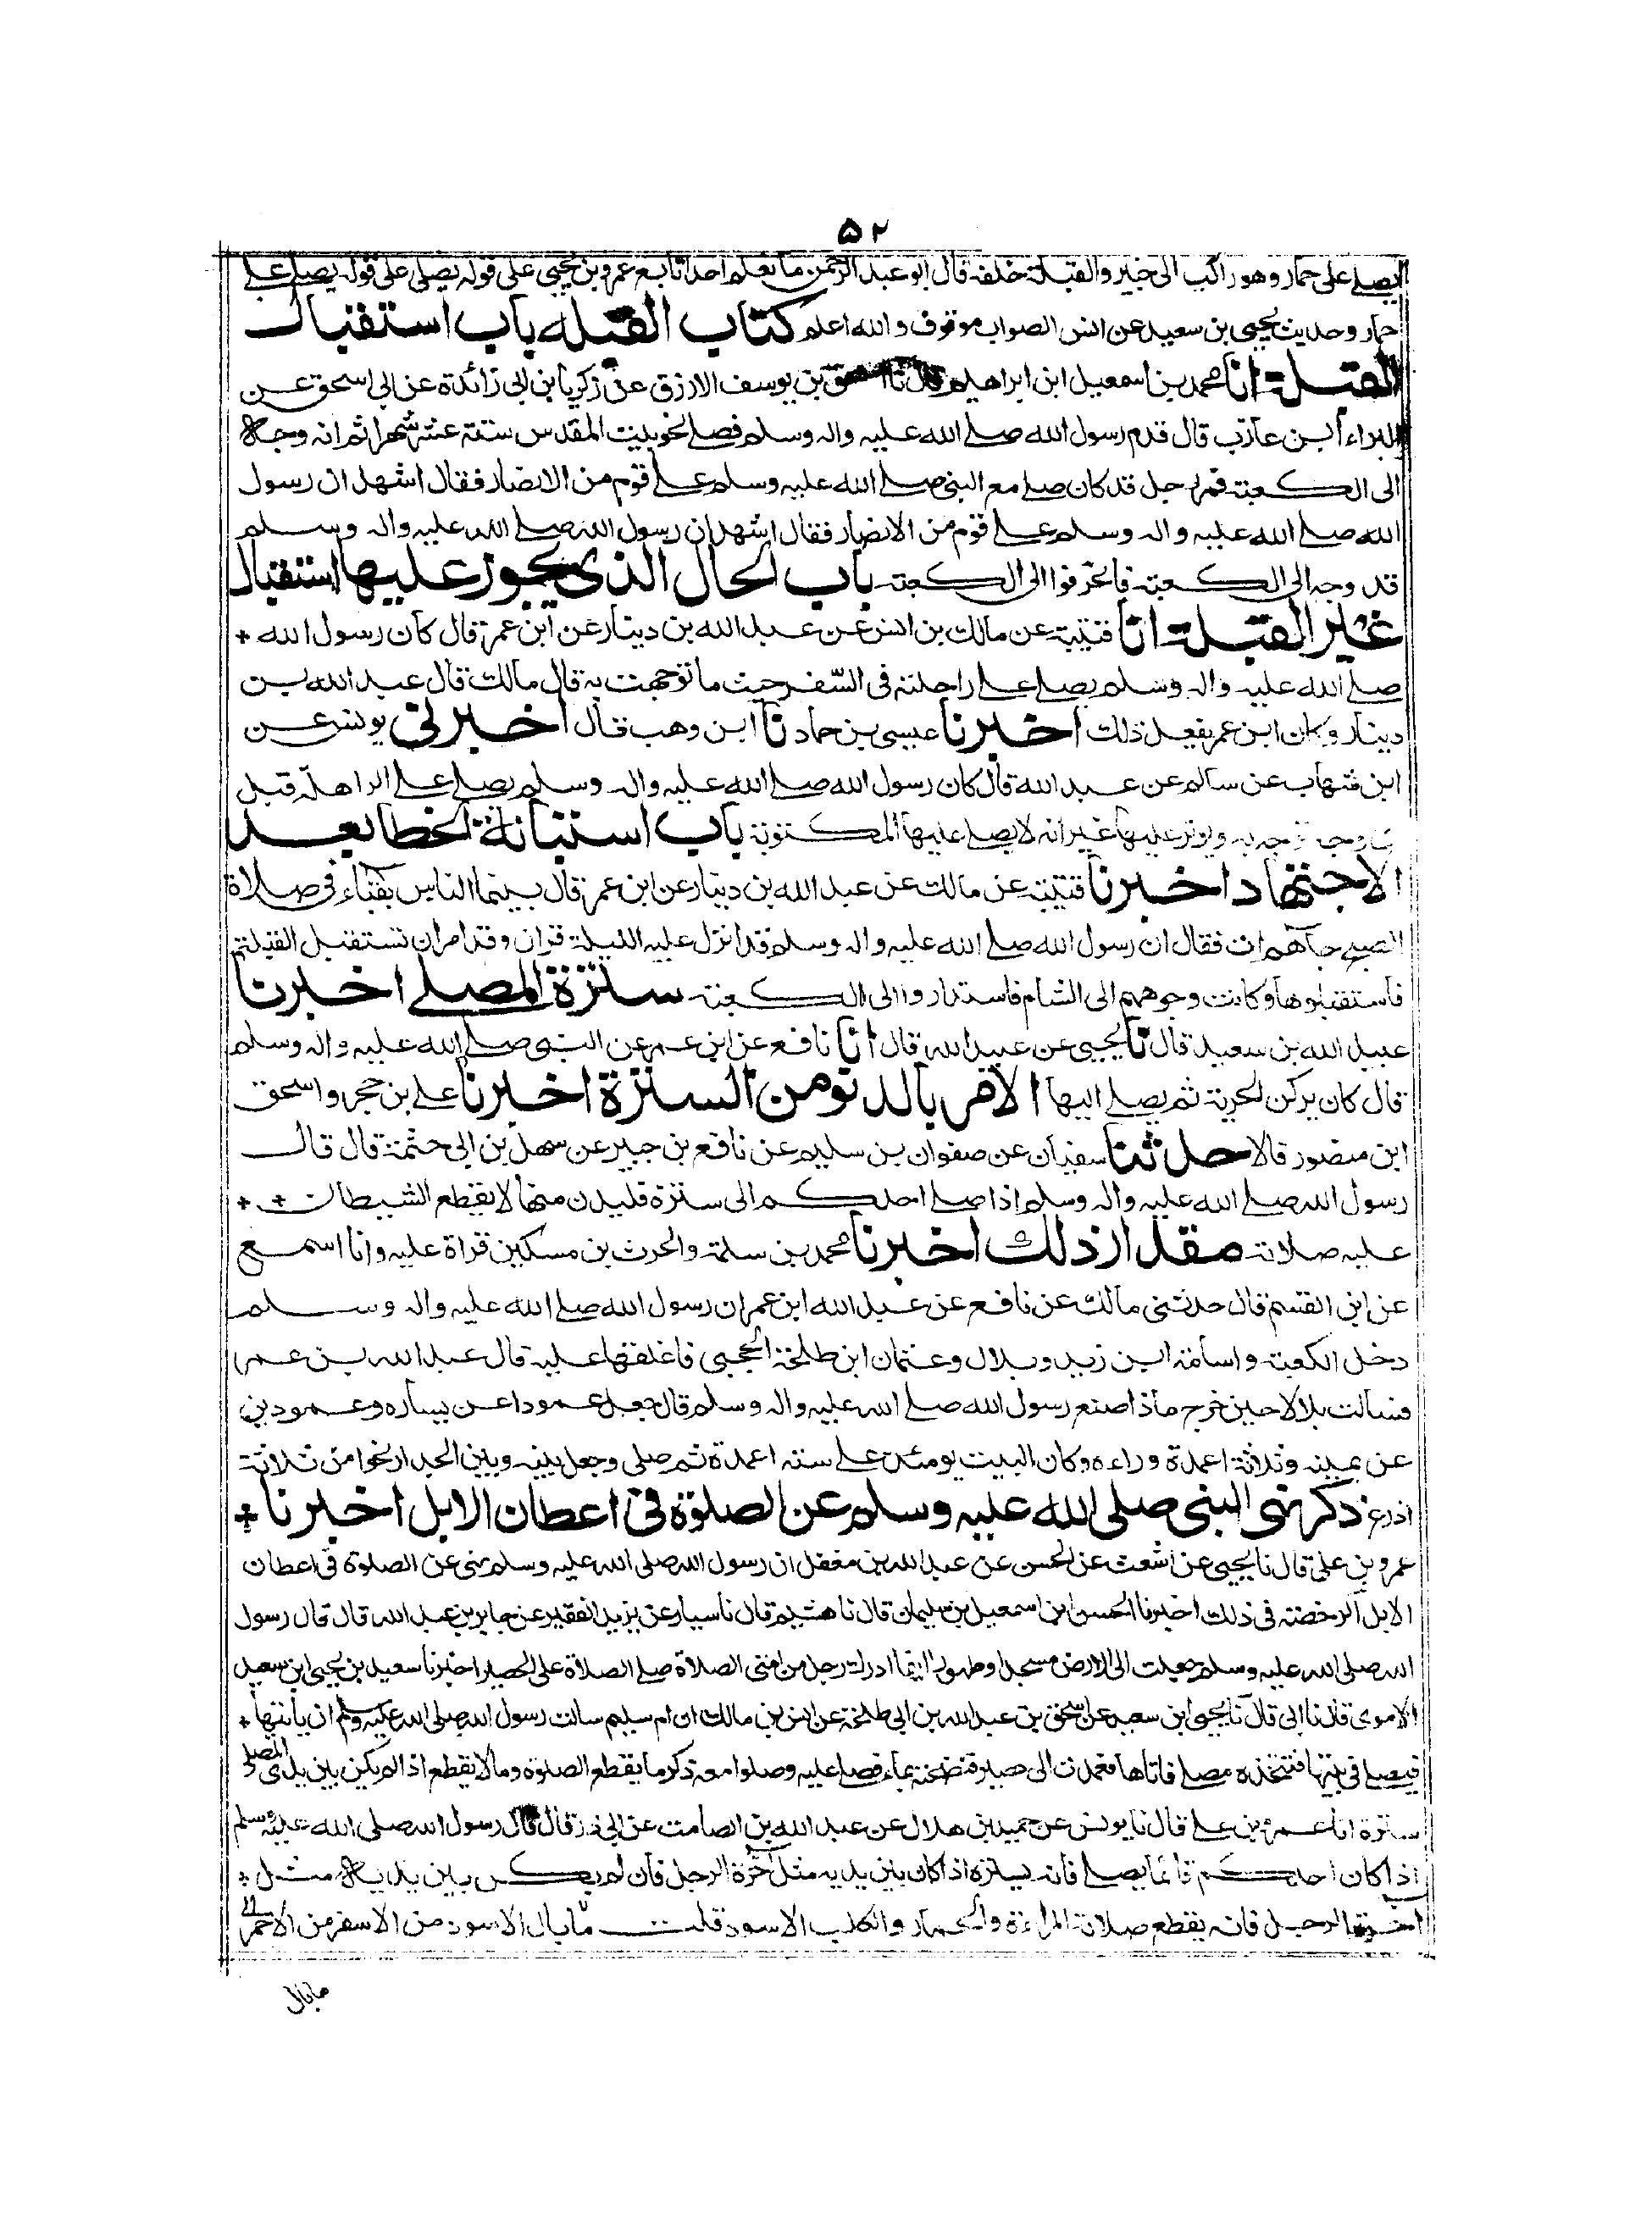 ۵۲
يصلے على حمار وهو راكب الى خيبر والقبلة خلفه قال ابو عبد الرحمن ما نعلم احدا تابع عمرو بن يحيى على قوله يصلى على قوله يصلے علے
حمار وحديث يحيى بن سعيد عن انس الصواب موقوف والله اعلم كتاب القبله باب استقبال
القبلة انا محمد بن اسمعيل ابن ابراهيم قال نا اسحق بن يوسف الازرق عن زكريا بن ابى زائدة عن ابى اسحق عن
البراء ابن عازب قال قدم رسول الله صلے الله عليه واله وسلم فصلے نحو بيت المقدس ستة عشر شهرا ثم انه وجه
الى الكعبة فمر رجل قد كان صلے مع النبى صلے الله عليه وسلم علے قوم من الانصار فقال اشهد ان رسول
الله صلے الله عليه واله وسلم علے قوم من الانصار فقال اشهد ان رسول الله صلے الله عليه واله وسلم
قد وجه الى الكعبة فانحرفوا الى الكعبة باب الحال الذى يجوز عليها استقبال
غير القبلة انا قتيبة عن مالك بن انس عن عبد الله بن دينار عن ابن عمر قال كان رسول الله +
صلے الله عليه واله وسلم يصلے علے راحلته فى السّفر حيث ما توجهت به قال مالك قال عبد الله بن
دينار وكان ابن عمر يفعل ذلك اخبرنا عيسى بن حماد نا ابن وهب قال اخبرنى يونس عن
ابن شهاب عن سالم عن عبد الله قال كان رسول الله صلے الله عليه واله وسلم يصلے علے الراحلة قبل
توجه به ويوتر عليها غير انه لا يصلے عليها المكتوبة باب استبانة الخطا بعد
الاجتهاد اخبرنا قتيبة عن مالك عن عبد الله بن دينار عن ابن عمر قال بينما الناس بقباء فى صلاة
الصبح جاءهم ات فقال ان رسول الله صلے الله عليه واله وسلم قد انزل عليه الليلة قران وقد امر ان تستقبل القبلة
فاستقبلوها وكانت وجوههم الى الشام فاستداروا الى الكعبة سترة المصلے اخبرنا
عبيد الله بن سعيد قال نا يحيى عن عبيد الله قال انا نافع عن ابن عمر عن النبى صلے الله عليه واله وسلم
قال كان يركن الحربة ثم يصلے اليها الامر بالدنو من السترة اخبرنا علے بن حجر واسحق
ابن منصور قالا حدثنا سفيان عن صفوان بن سليم عن نافع بن جبير عن سهل بن ابى حثمة قال قال
رسول الله صلے الله عليه واله وسلم اذا صلے احدكم الى سترة فليدن منها لا يقطع الشيطان + +
عليه صلاته مقدار ذلك اخبرنا محمد بن سلمة والحرث بن مسكين قراة عليه وانا اسمع
عن ابن القسم قال حدثنى مالك عن نافع عن عبد الله ابن عمر ان رسول الله صلے الله عليه واله وسلم
دخل الكعبة واسامة ابن زيد وبلال وعثمان ابن طلحة الحجبى فاغلقها عليه قال عبد الله بن عمر
فسالت بلالا حين خرج ماذا صنع رسول الله صلے الله عليه واله وسلم قال جعل عمودا عن يساره وعمودين
عن يمينه وثلاثة اعمدة وراءه وكان البيت يومئذ علے ستة اعمدة ثم صلى وجعل بينه وبين الجدار نحوا من ثلاثة
اذرع ذكر نهى النبى صلى الله عليه وسلم عن الصلوة فى اعطان الابل اخبرنا +
عمرو بن على قال نا يحيى عن اشعث عن الحسن عن عبد الله بن مغفل ان رسول الله صلى الله عليه وسلم نهى عن الصلوة فى اعطان
الابل الرخصة فى ذلك اخبرنا الحسن ابن اسمعيل بن سليمان قال نا هشيم قال نا سيار عن يزيد الفقير عن جابر بن عبد الله قال قال رسول
الله صلى الله عليه وسلم جعلت الى الارض مسجدا وطهورا اينما ادرك رجل من امتى الصلاة صلے الصلاة على الحصير اخبرنا سعيد بن يحيى ابن سعيد
الاموى قال نا ابى قال نا يحيى ابن سعيد عن اسحق بن عبد الله بن ابى طلحة عن انس بن مالك ان ام سليم سالت رسول الله صلى الله عليه وسلم ان ياتيها +
فيصلے فى بيتها فتتخذه مصلے فاتاها فعمدت الى حصير فنضحته بماء فصلے عليه وصلوا معه ذكر ما يقطع الصلوة وما لا يقطع اذا لم يكن بين يدى المصلے
سترة انا عمرو بن علے قال نا يونس عن حميد بن هلال عن عبد الله بن الصامت عن ابى ذر قال قال رسول الله صلى الله عليه وسلم
اذا كان احدكم قائما يصلے فانه يستره اذا كان بين يديه مثل آخرة الرحل فان لم يكن بين يديه مثل
اخرة الرحل فانه يقطع صلاته المراءة والحمار والكلب الاسود قلت ما بال الاسود من الاصفر من الاحمر
ما بال